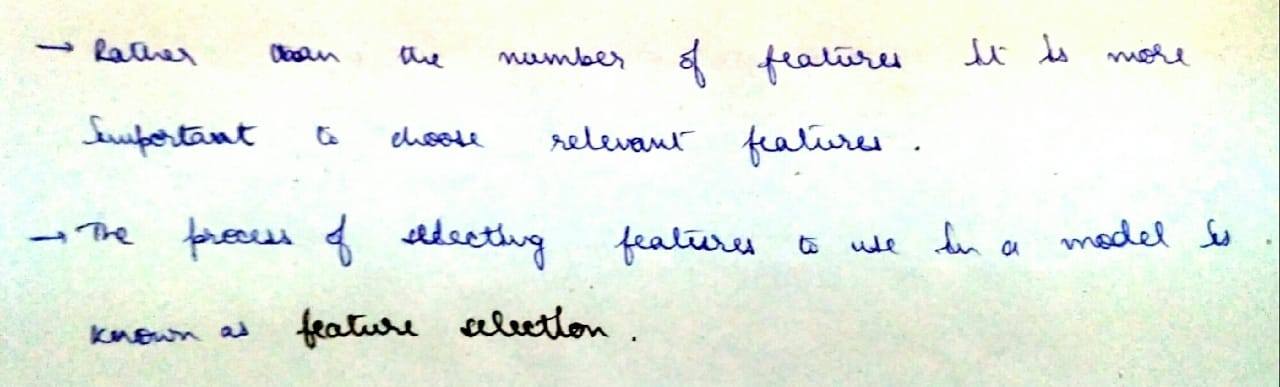 → Rather than the number of features it is more
important to choose relevant features.
→ The process of selecting features to use in a model is
known as feature selection.